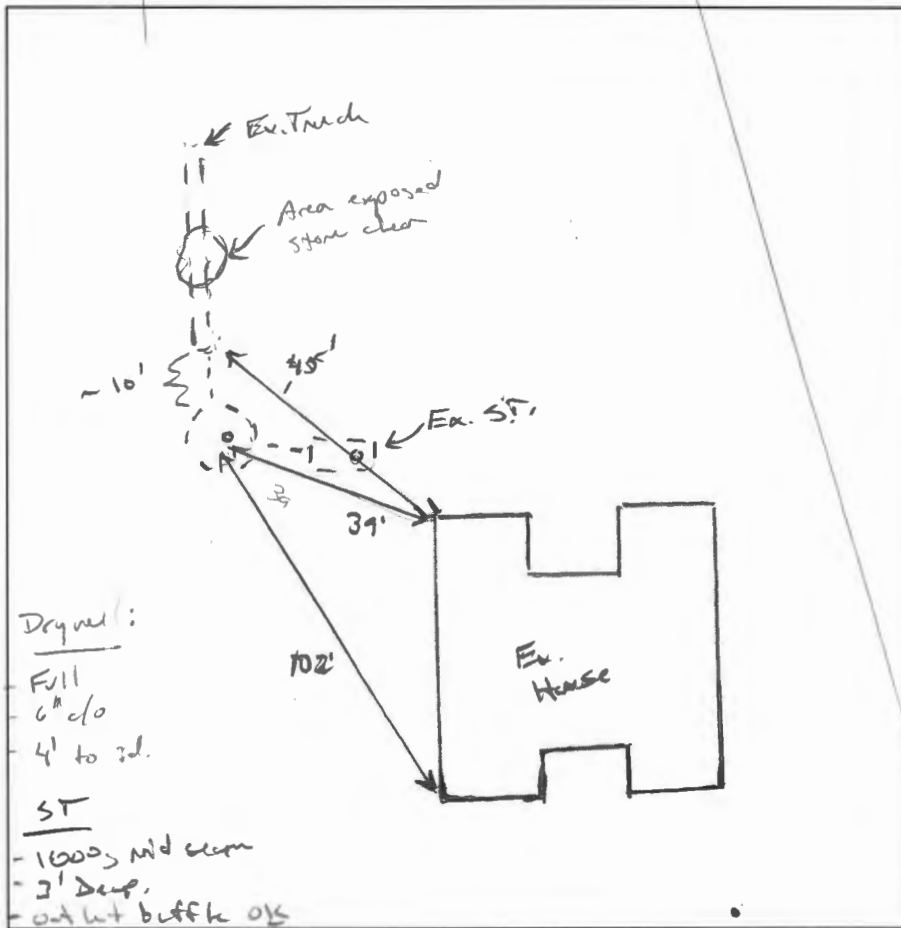 Ex. Trench
Area exposed
stone clean
~ 10'
45'
Ex. S.T.
39
39'
102'
Ex.
House
Drywell:
Full
6" c/o
4' to
ST
- 1000g mid seam
- 3' Deep.
- outlet baffle ok